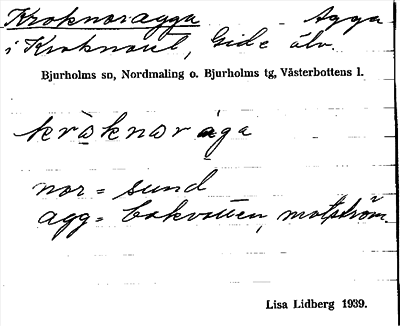 Kroknoragga Agga
i Kroknoret, Gide älv.
Bjurholms sn, Nordmaling o. Bjurholms tg, Västerbottens l.
kràknoràga
nor = sund
agg = bakvatten, motström.
Lisa Lidberg 1939.